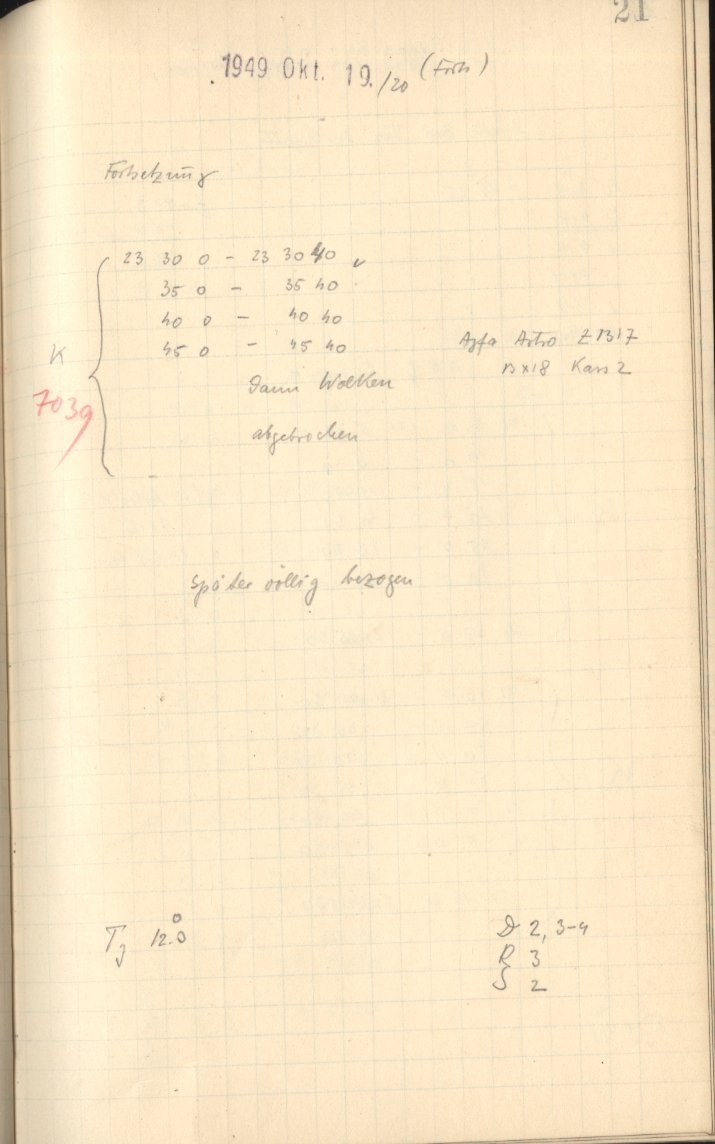 21
1949 Okt. 19./20 (Forts)
Fortsetzung
23 30 0 - 23 30 40
35 0 - 35 40
40 0 - 40 40
45 0 - 45 40
K
7039
Agfa Astro Z 1317
13x18 Kass 2
Dann Wolken
abgebrochen
Später völlig bezogen
TJ 12.°0
D 2, 3-4
R 3
S 2